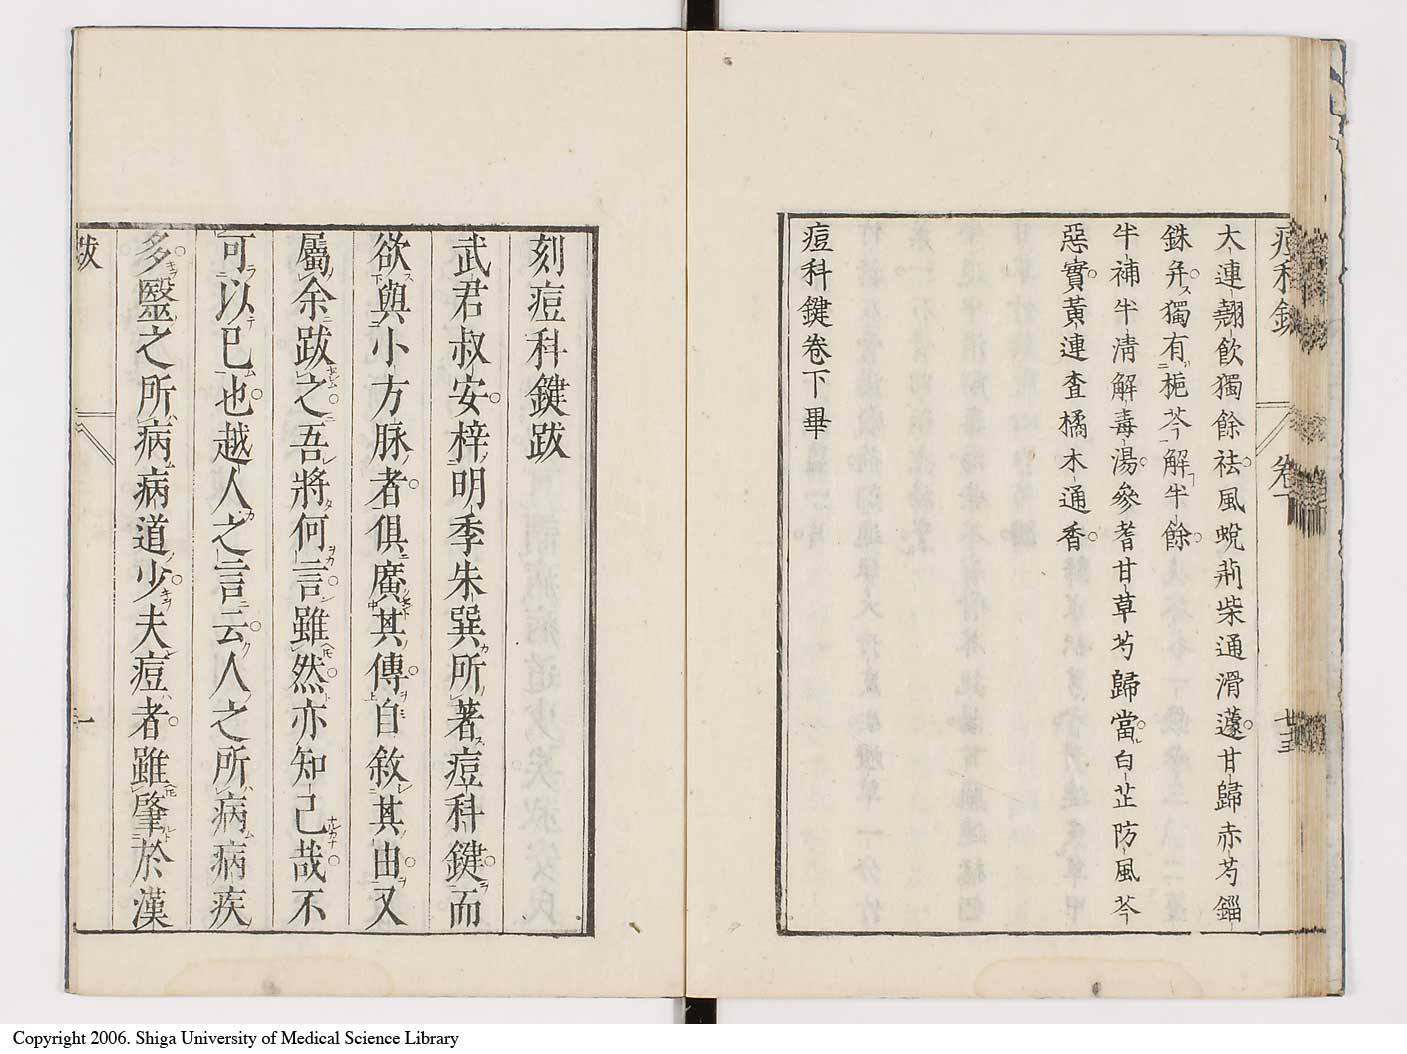 痘科鍵 卷下 廿五
大連翹飲獨餘祛風蛻荊柴通滑蘧甘歸赤芍錙
銖弁獨有梔芩解半餘
牛補牛清解毒湯參耆甘草芍歸當白芷防風芩
惡實黃連査橘木通香
痘科鍵卷下畢
刻痘科鍵跋
武君叔安梓明季朱巽所著痘科鍵而
欲與小方脉者俱廣其傳自敘其由又
屬余跋之吾將何言雖然亦知己哉不
可以已也越人之言云人之所病病疾
多醫之所病病道少夫痘者雖肇於漢
跋 一
Copyright 2006. Shiga University of Medical Science Library